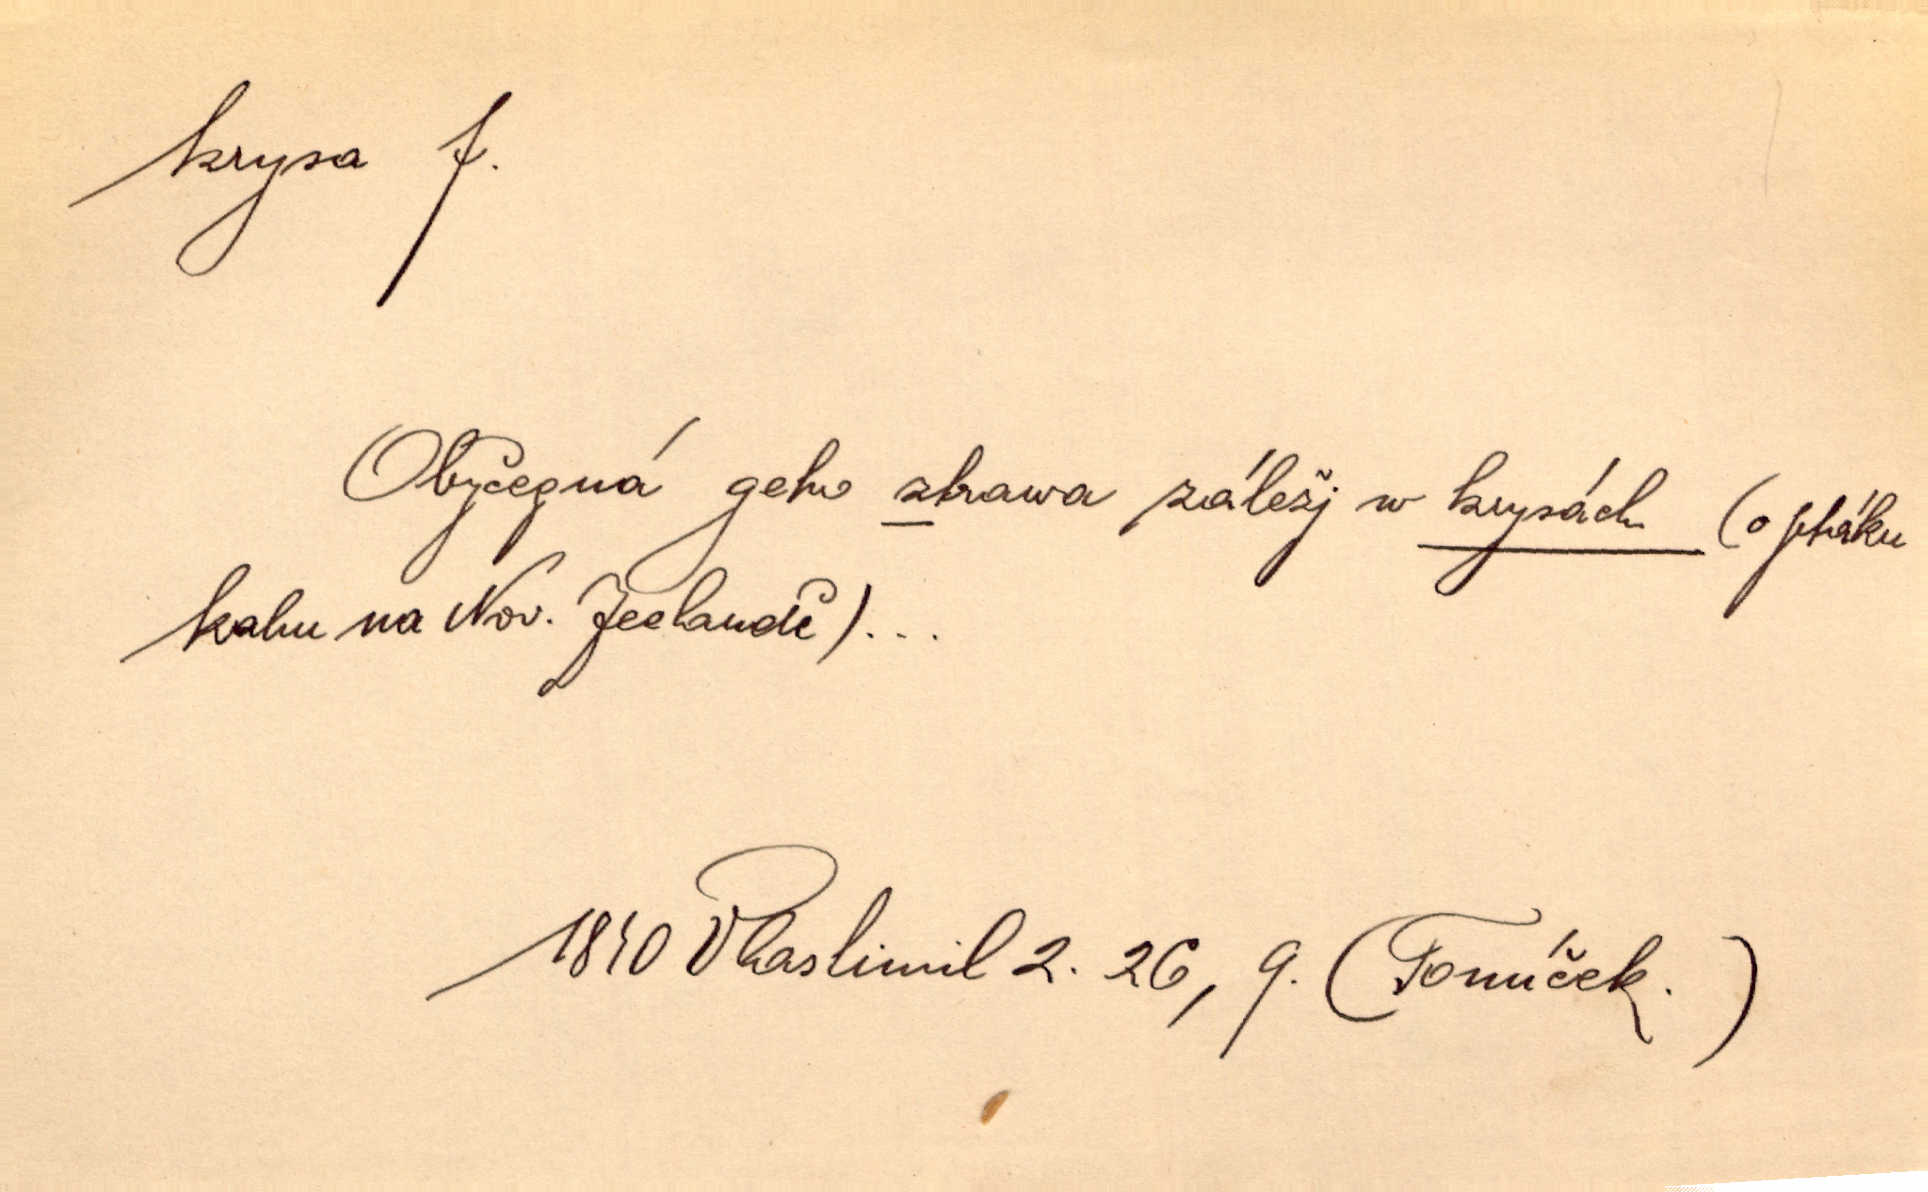 krysa f.
Obyčegná geho ztrawa záležj w krysách (o ptáku
kahu na Nov. Zeelandě)...
1840 Vlastimil 2. 26, 9. (Tomíček.)